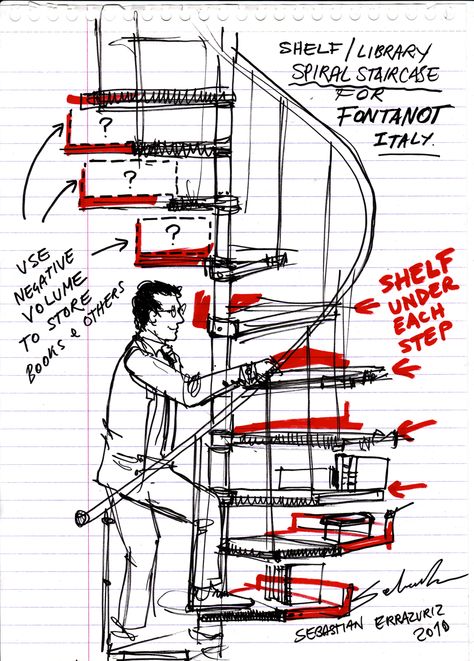 SHELF/LIBRARY
SPIRAL STAIRCASE
FOR
FONTANOT
ITALY.
?
?
?
USE
NEGATIVE
VOLUME
TO STORE
BOOKS & OTHERS
SHELF
UNDER
EACH
STEP
SEBASTIAN ERRAZURIZ
2010